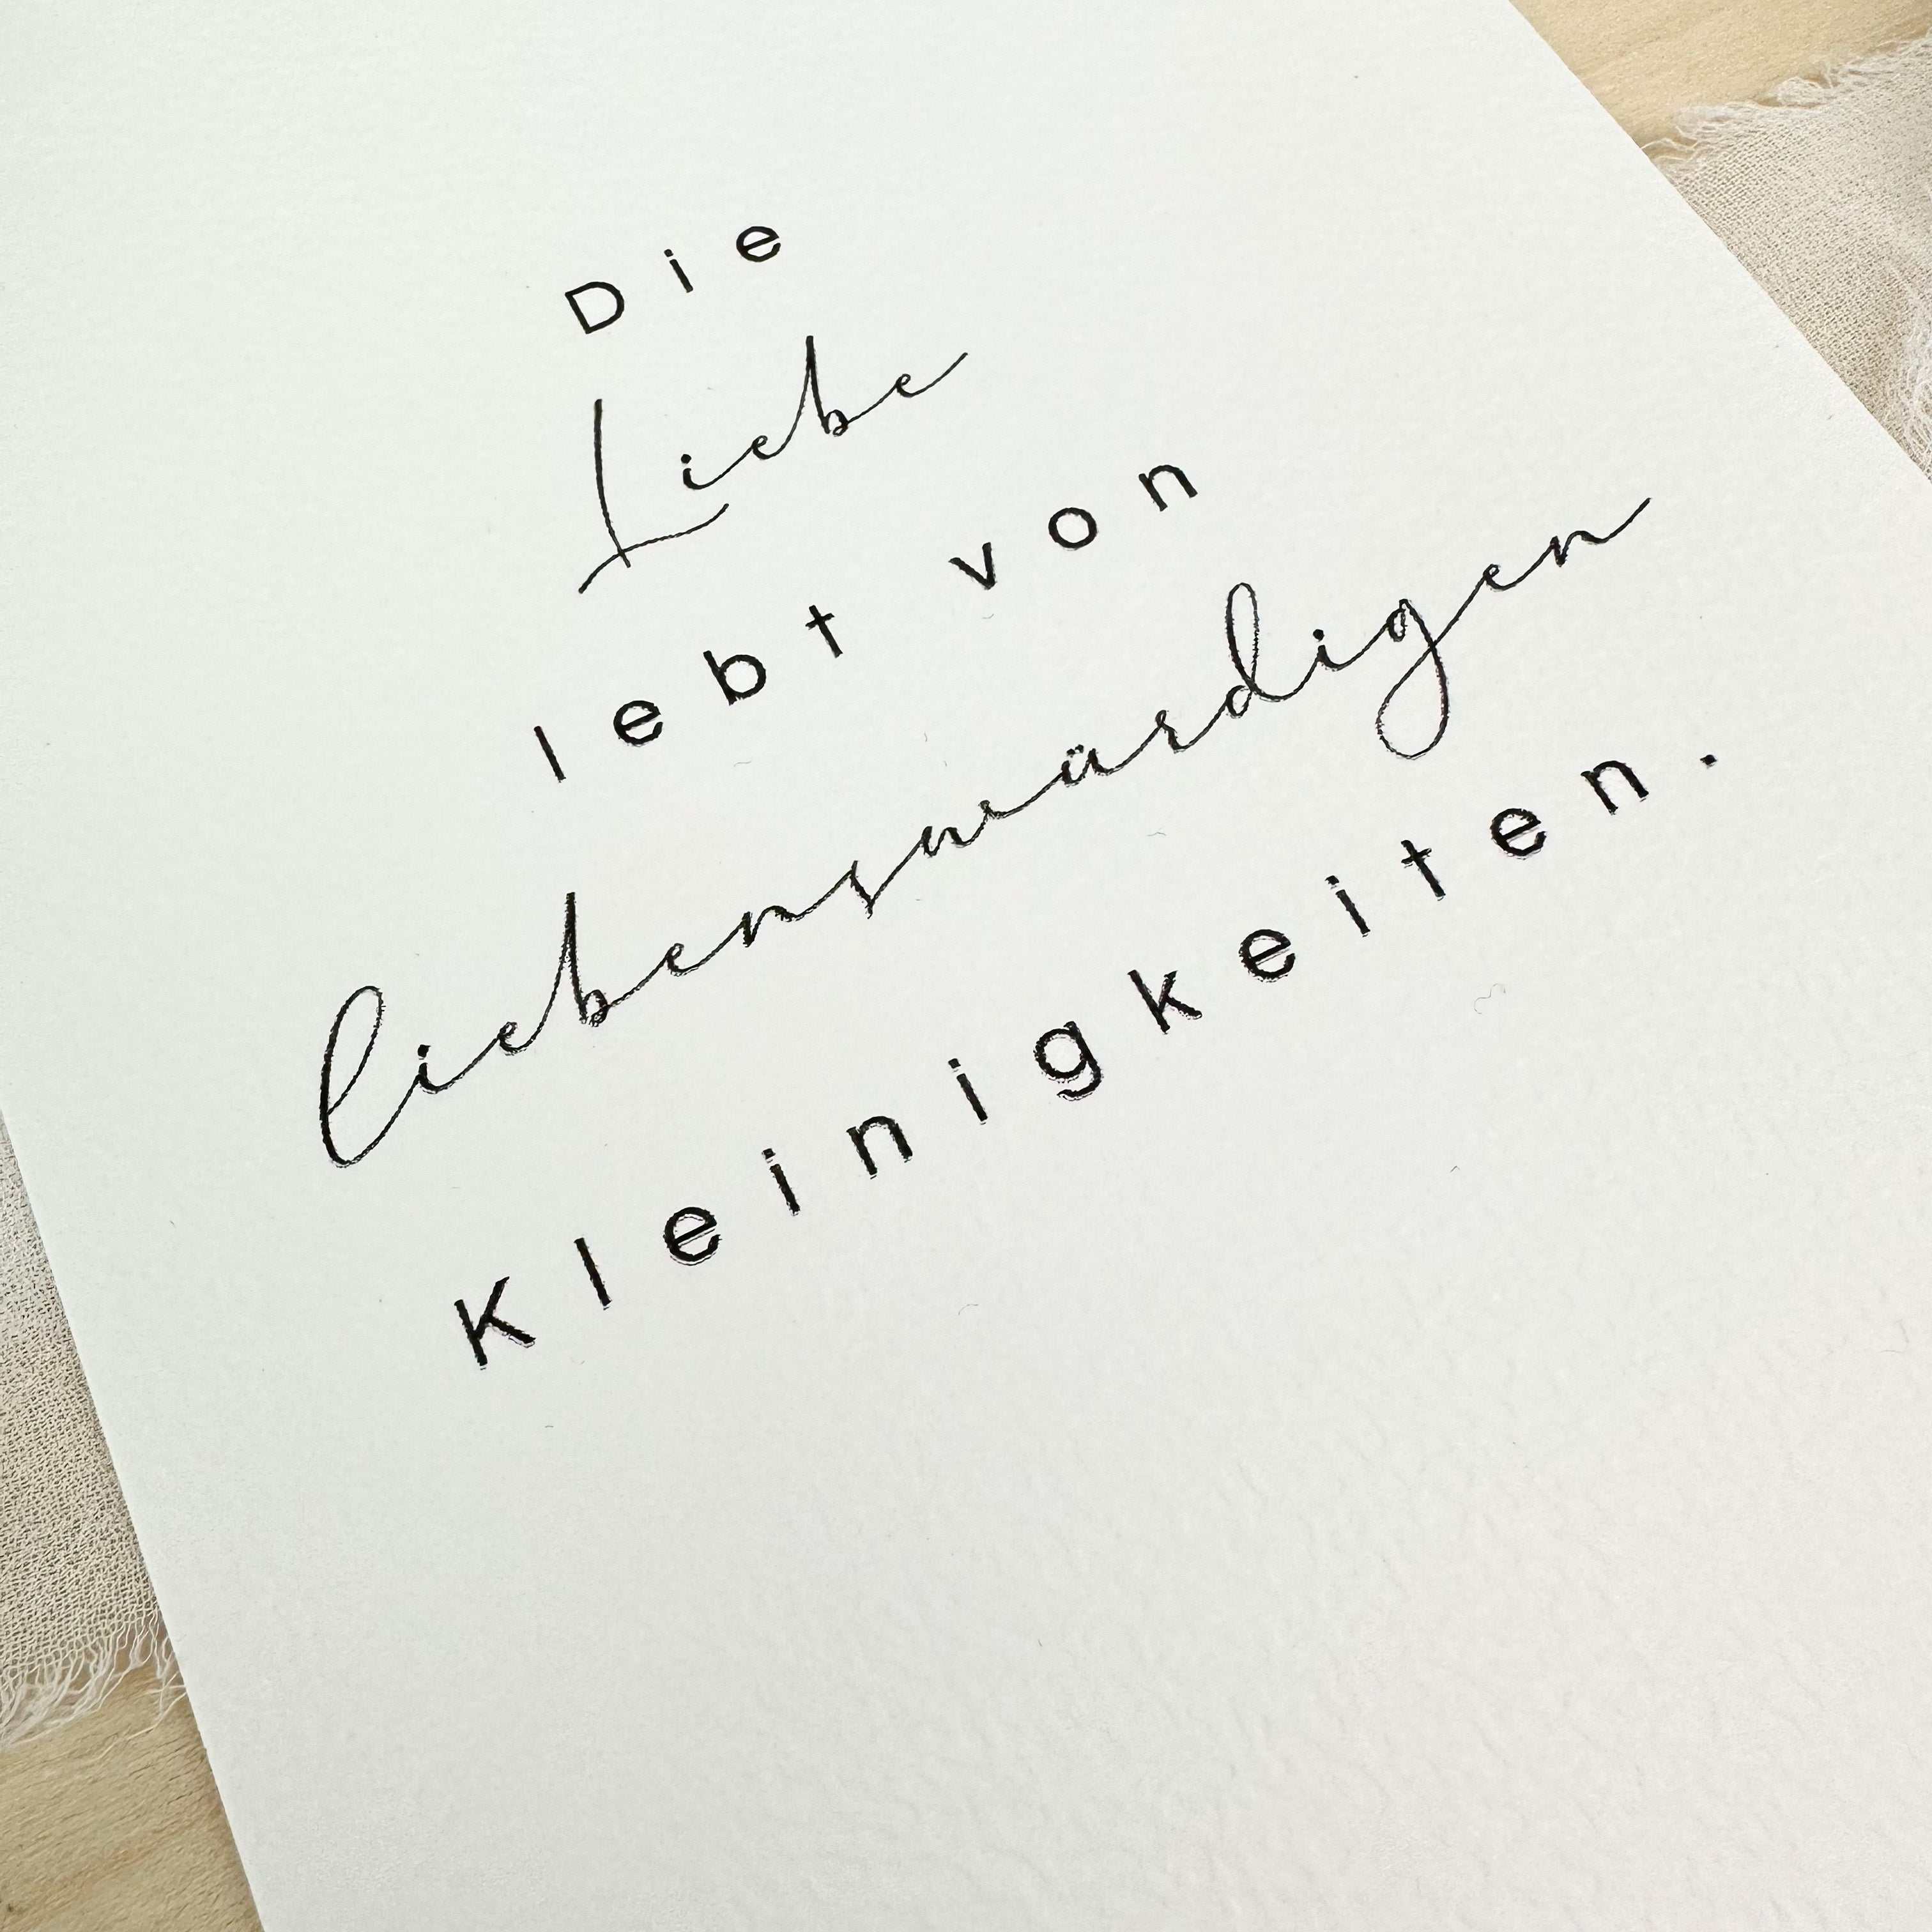 Die
Liebe
lebt von
liebenswürdigen
Kleinigkeiten.